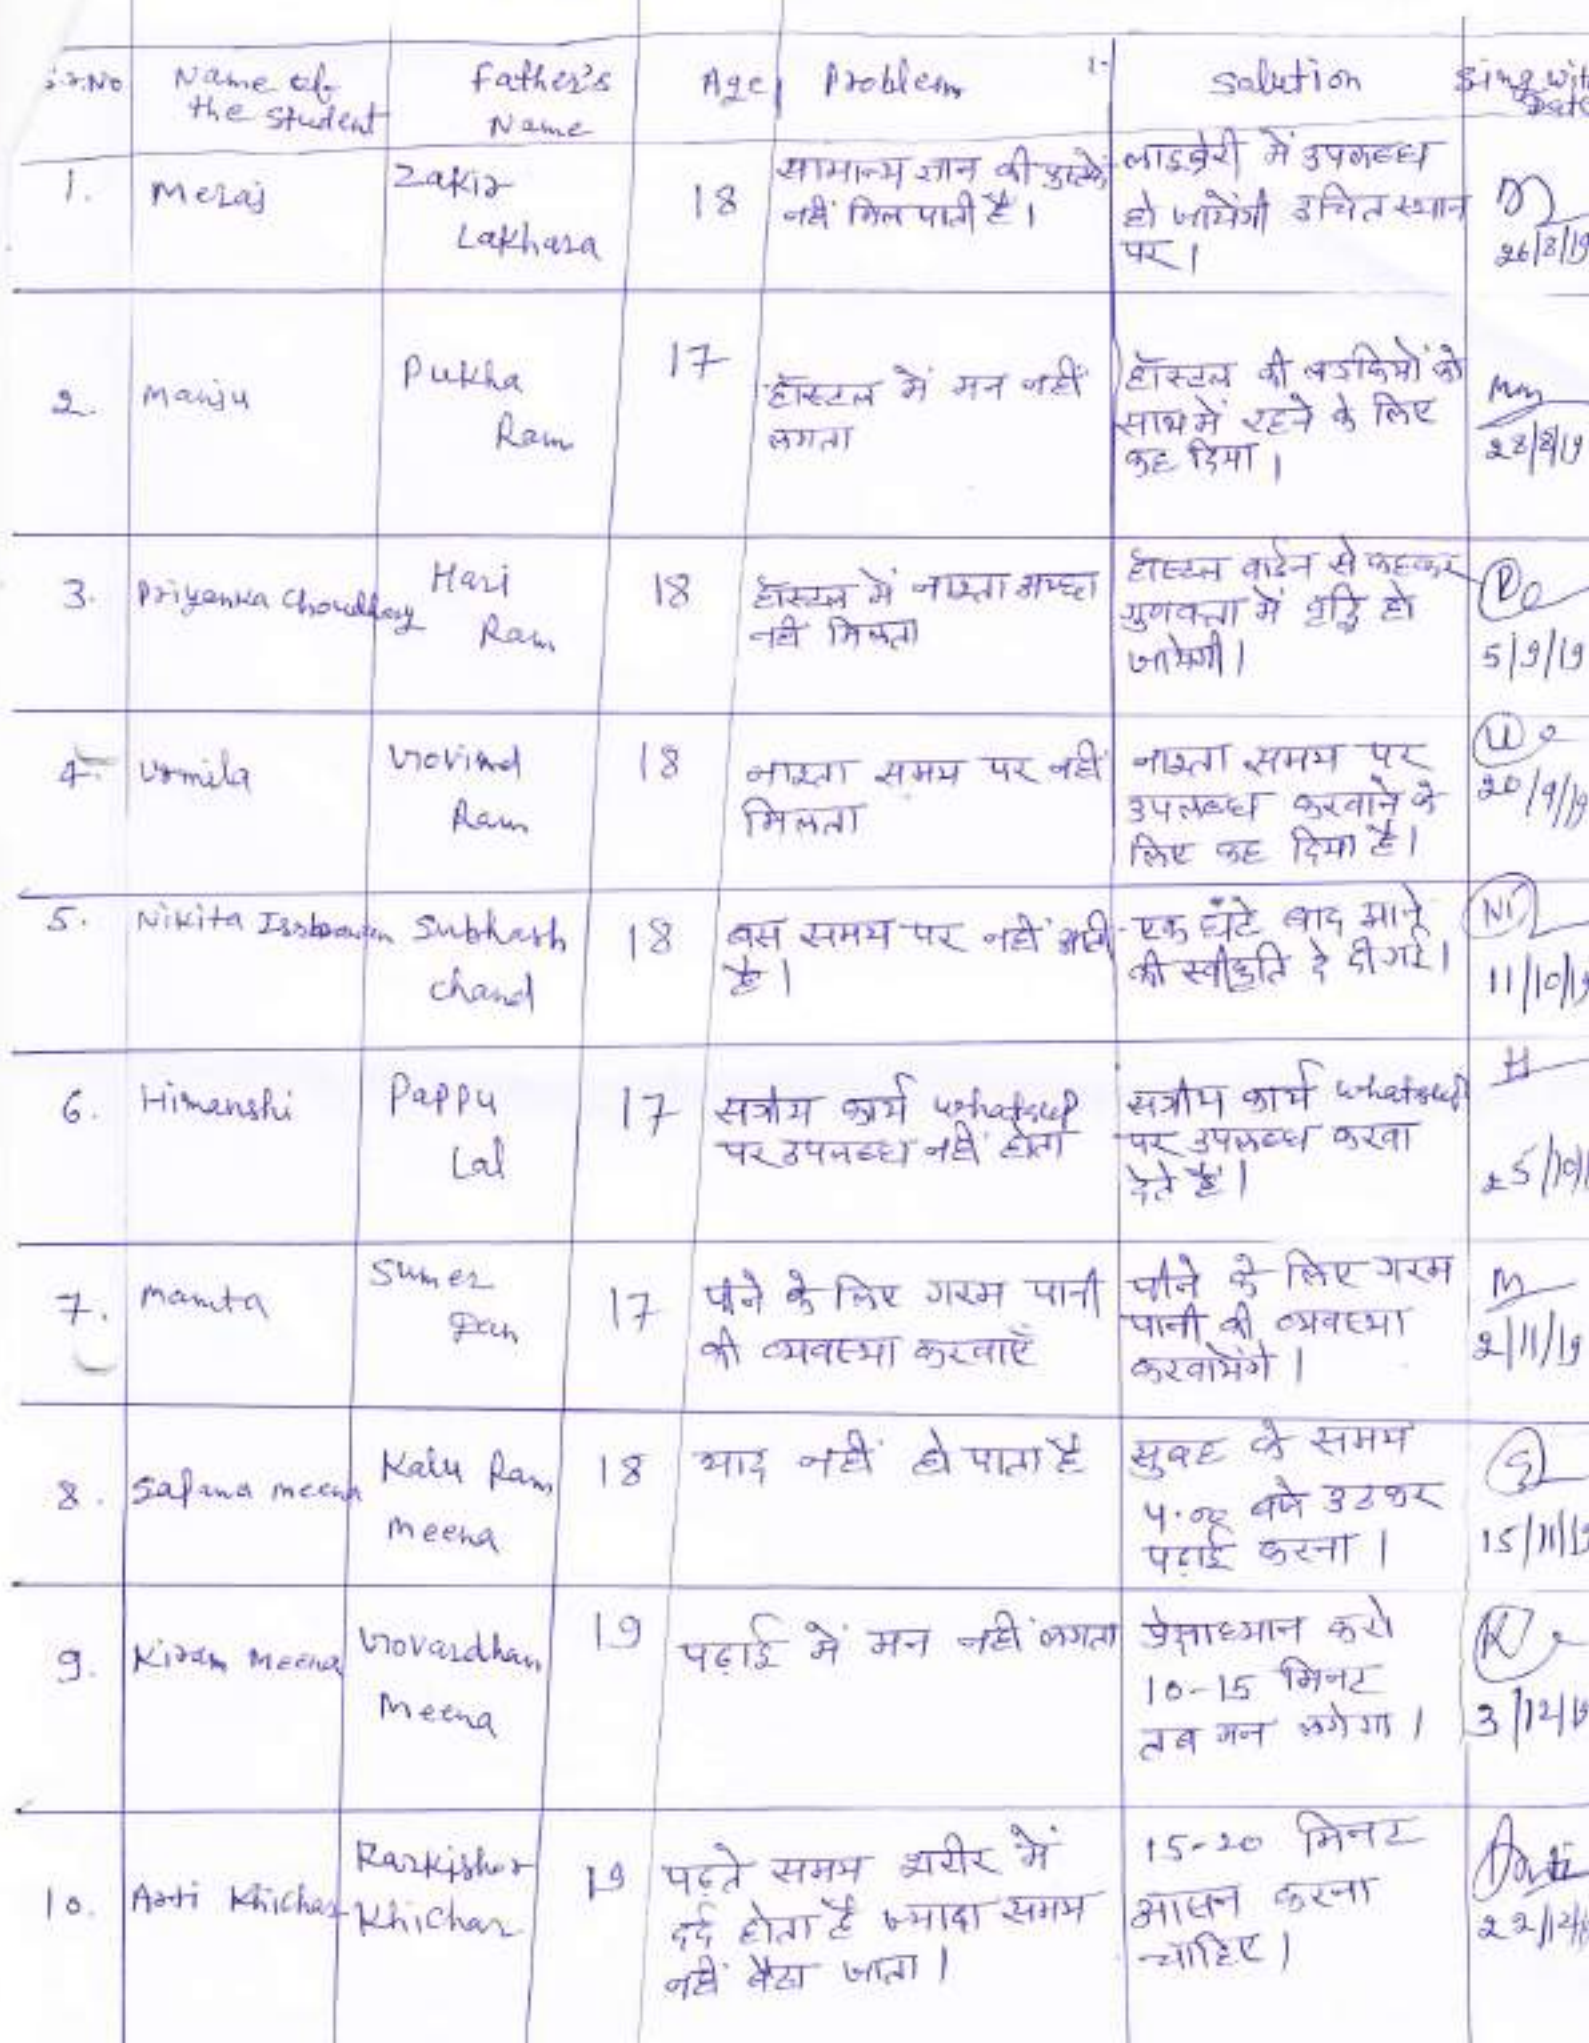 Sr.No Name of the Student Father's Name Age Problem Solution Sing with Date
1. Meraj Zakir Lakhara 18
सामान्य ज्ञान की पुस्तकें
नहीं मिल पाती है।
लाइब्रेरी में उपलब्ध
हो जायेंगी उचित स्थान
पर।
26/8/19
2. Manju Pukha Ram 17
हॉस्टल में मन नहीं
लगता
हॉस्टल की लडकियों को
साथ में रहने के लिए
कह दिया।
28/8/19
3. Priyanka Choudhary Hari Ram 18
हॉस्टल में नाश्ता अच्छा
नहीं मिलता
हॉस्टल वार्डन से कहकर
गुणवत्ता में वृद्धि हो
जायेगी।
5/9/19
4. Urmila Govind Ram 18
नाश्ता समय पर नहीं
मिलता
नाश्ता समय पर
उपलब्ध करवाने के
लिए कह दिया है।
20/9/19
5. Nikita Subhash Chand 18
बस समय पर नहीं आती
है।
एक घंटे बाद आने
की स्वीकृति दे दी गई।
11/10/19
6. Himanshi Pappu Lal 17
सत्रीय कार्य whatsup
पर उपलब्ध नहीं होता
सत्रीय कार्य whatsup
पर उपलब्ध करवा
देते हैं।
25/10/1
7. Mamta Sumer Dan 17
पीने के लिए गरम पानी
की व्यवस्था करवाएँ
पीने के लिए गरम
पानी की व्यवस्था
करवायेंगे।
2/11/19
8. Sapana meena Kalu Ram Meena 18
याद नहीं हो पाता है
सुबह के समय
4.00 बजे उठकर
पढ़ाई करना।
15/11/19
9. Kiran Meena Govardhan Meena 19
पढ़ाई में मन नहीं लगता
प्रेक्षाध्यान करो
10-15 मिनट
तब मन लगेगा।
3/12/19
10. Arti Khichar Rarkishor Khichar 19
पढ़ते समय शरीर में
दर्द होता है ज्यादा समय
नहीं बैठा जाता।
15-20 मिनट
आसन करना
चाहिए।
Arti
22/12/1